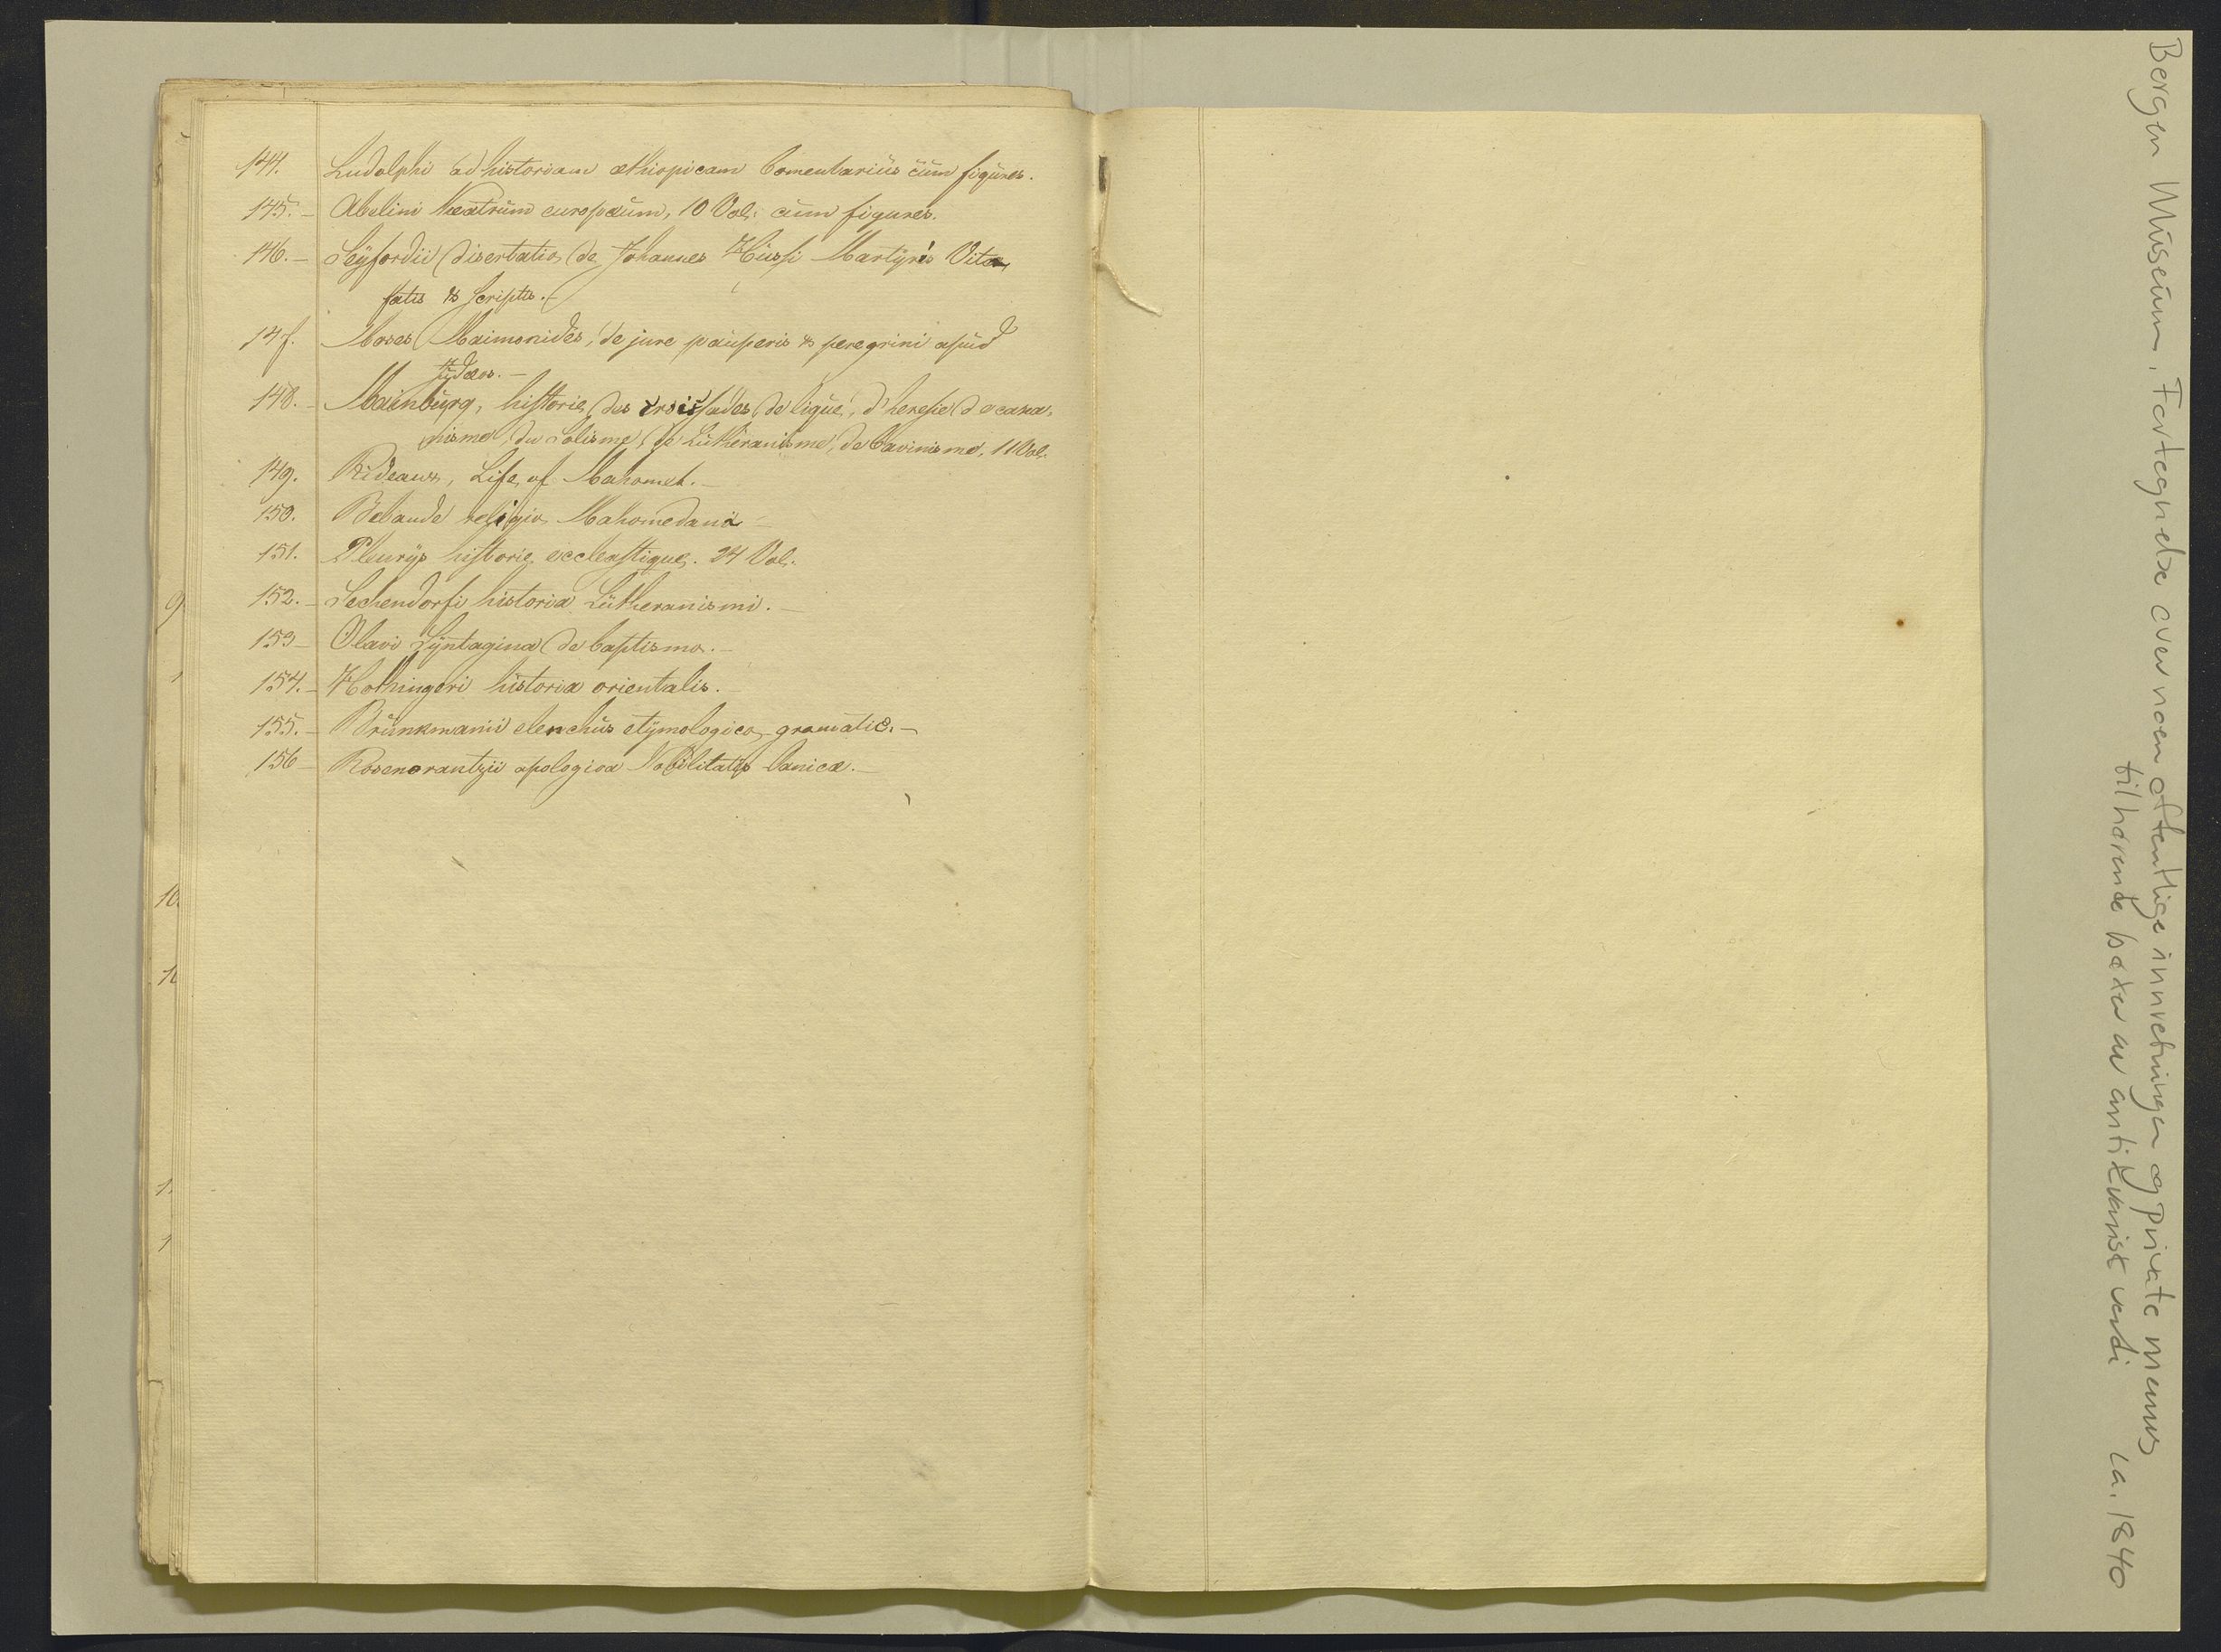 144. Ludolphi ad historiam æthiopicam Comentariüs cüm figüres.
145. – Abelini theatrüm europæüm, 10 Vol: cüm figures.
146. – Seyfordii disertatio de Johannes Hüssi Martÿris Vita
fatis & Scriptis. –
147. Moses Maimonides, de jure paüperis & peregrini apüd
jüdæos. –
148. – Mainbürg, historie des croissades de ligüe, d'heresie
nisme, du Lütheranisme, de Cavinisme, 11 Vol.
149. Rideaux, Life of Mahomet. –
150. Relande religio Mahomedana –
151. Fleurÿs historie eccleastique. 24 Vol.
152. – Sechendorfi historia Lütheranismi. –
153 – Olavi Sÿntagina de baptismo. –
154. – Hothingeri historia orientalis.
155. – Brünkmanii elenchüs etÿmologico-gramatic. –
156 – Rosencrantzii apologioa Nobilitatis Danicæ. –
9
10.
Bergen Museum, Fortegnelse over noen offentlige innretninger og private menns
tilhørende bøker av antikvarisk verdi ca. 1840